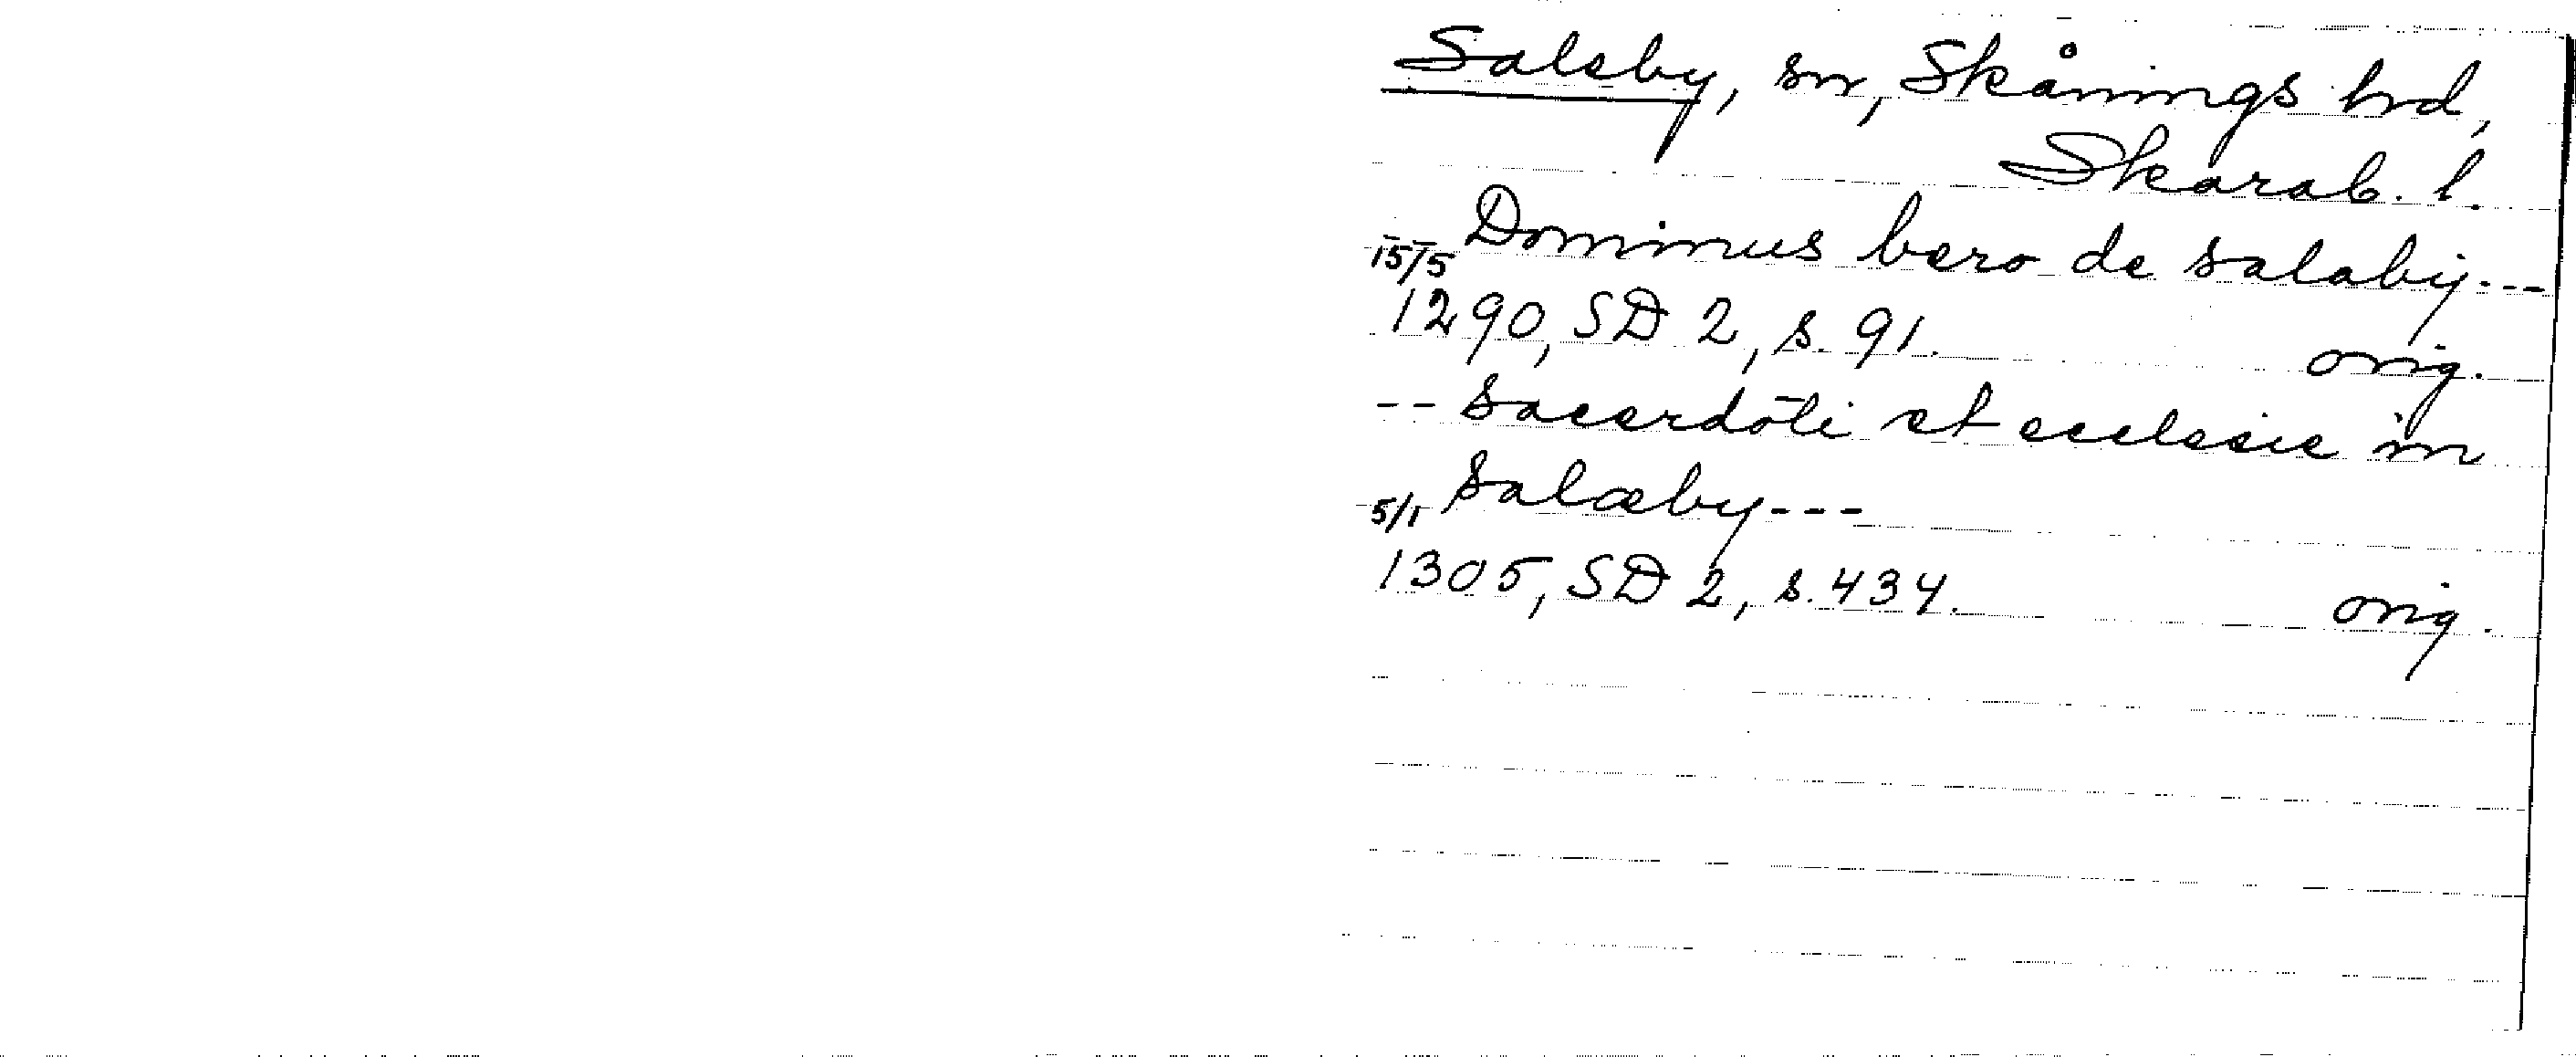 Saleby, sn, Skånings hd,
Skarab. l.
Dominus bero de salaby---
15/5
1290, SD 2, s. 91. orig.
-- sacerdoti et ecclesie in
salæby---
5/1
1305, SD 2, s. 434. orig.